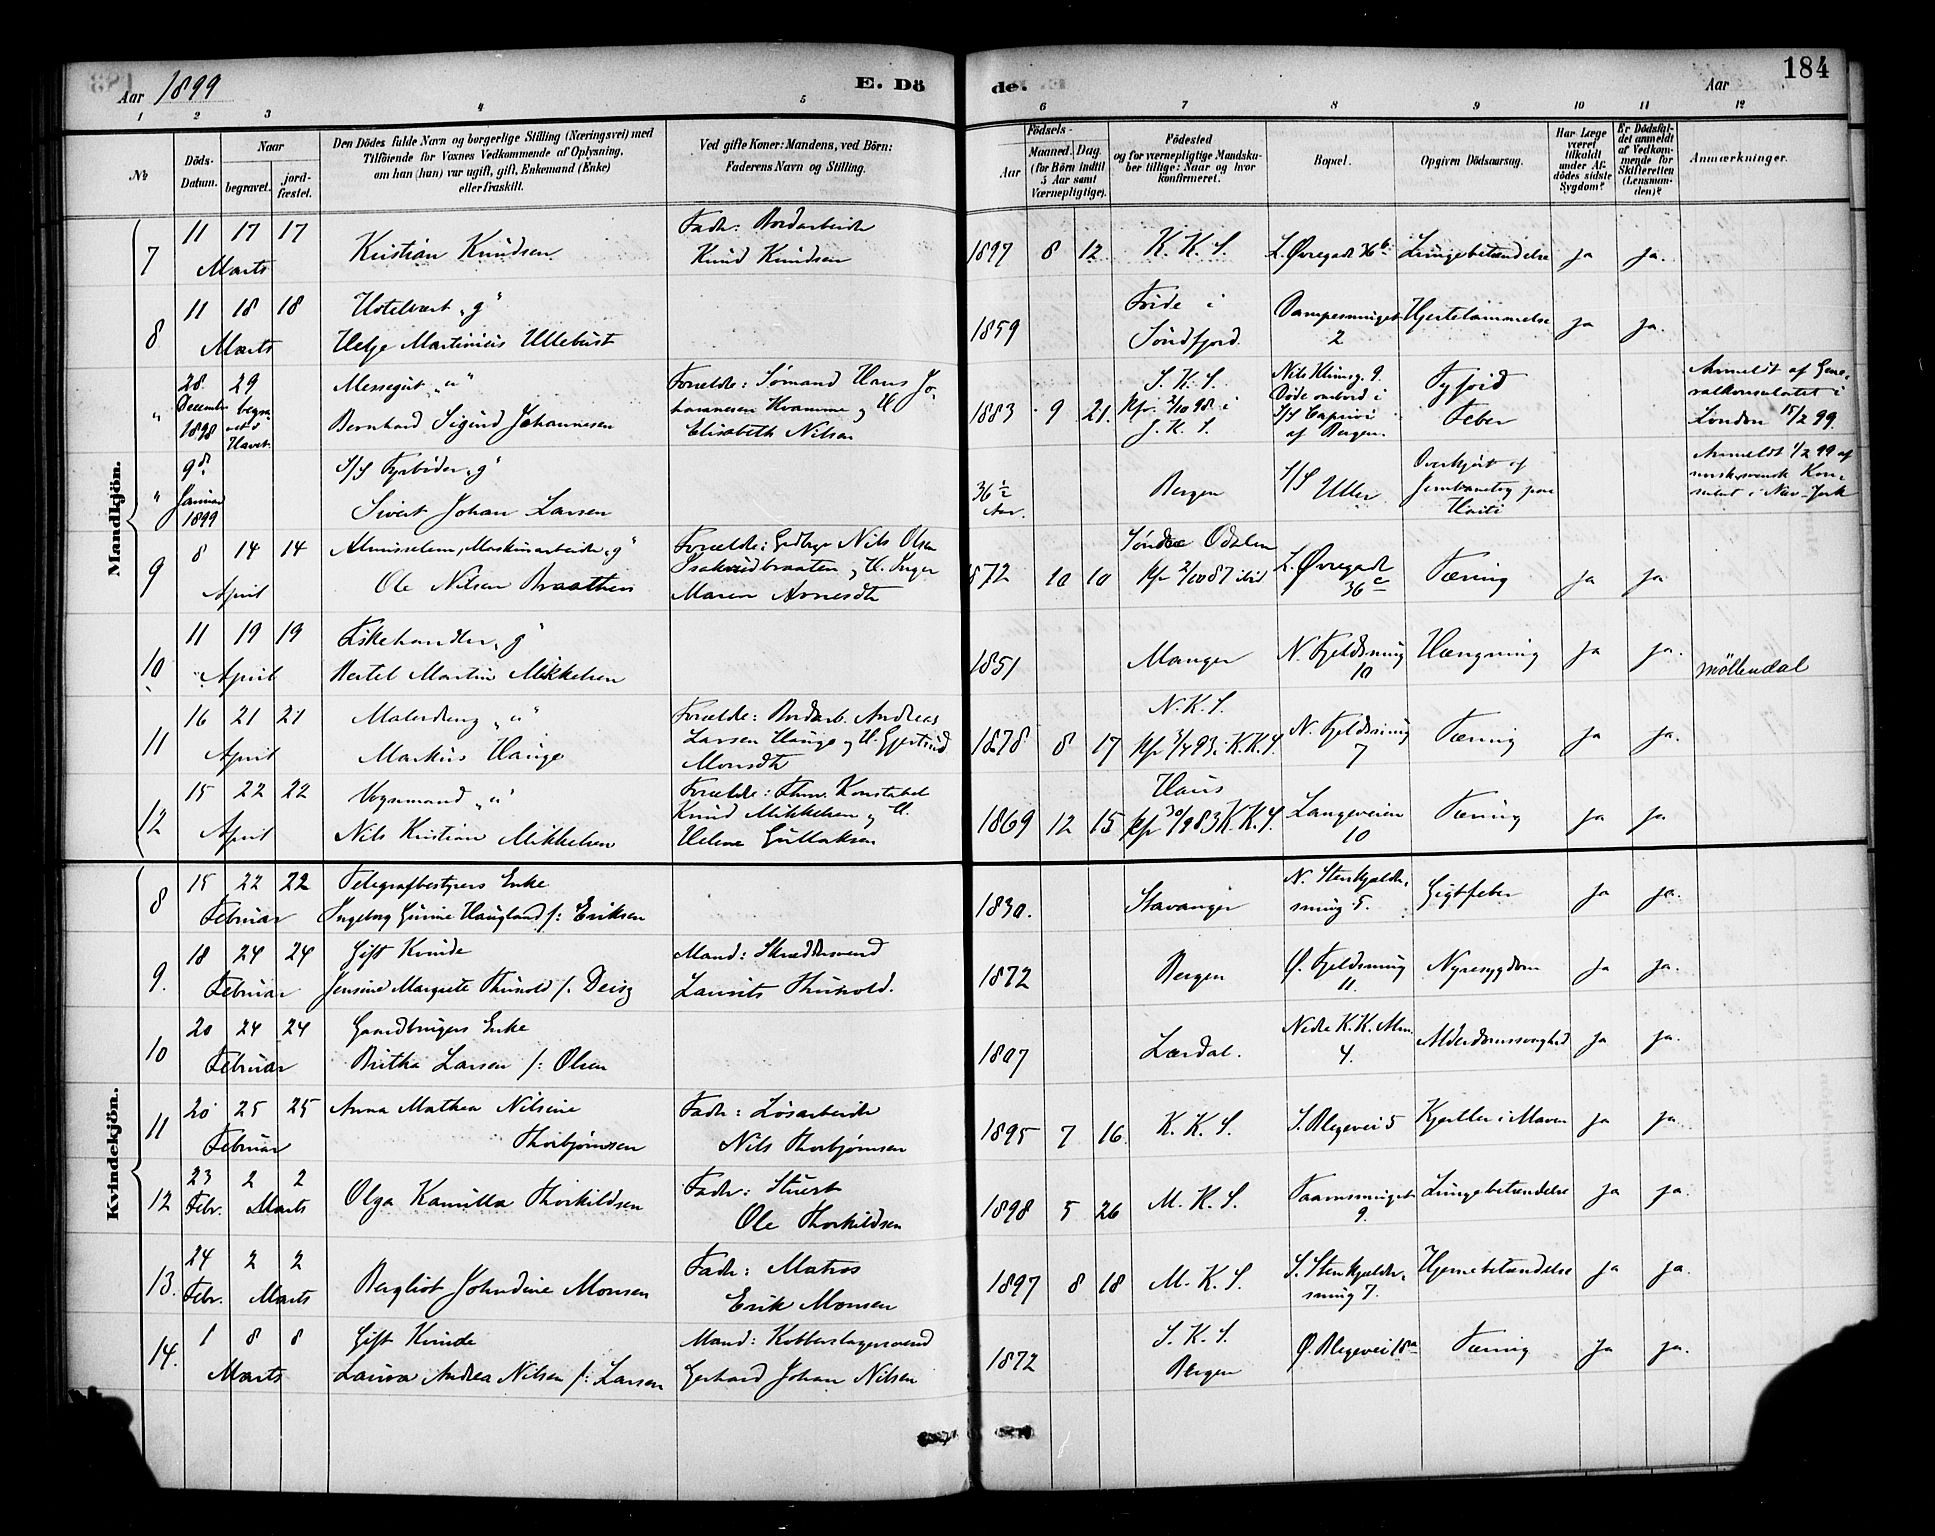 Aar 1899
E. Dö
de.
Aar
184
1 2 3 4 5 6 7 8 9 10 11 12
№
Döds-Datum.
Naar
begravet.
jord-fæstet.
Den Dödes fulde Navn og borgerlige Stilling (Næringsvei) med
Tilföiende for Voxnes Vedkommende af Oplysning,
om han (hun) var ugift, gift, Enkemand (Enke)
eller fraskilt.
Ved gifte Koner: Mandens, ved Börn:
Faderens Navn og Stilling.
Födsels-
Aar
Maaned. Dag.
(for Börn indtil
5 Aar samt
Værnepligtige).
Födested
og for værnepligtige Mandska-
ber tillige: Naar og hvor
konfirmeret.
Bopæl.
Opgiven Dödsaarsag.
Har Læge
været
tilkaldt
under Af-
dödes sidste
Sygdom?
Er Dödsfal-
det anmeldt
af Vedkom-
mende for
Skifteretten
(Lensman-
den)?
Anmærkninger.
Mandkjön.
7 11 17 17 Marts Kristian Knudsen
Fader: Bordarbeider
Knud Knudsen
1897 8 12 K. K. S. L. Øvregade 36 b Lungebetændelse ja ja.
8 11 18 18 Marts Hotelvært "g"
Helge Martinius Ullebust
1859 Førde i
Søndfjord. Dampesmuget
2 Hjertelammelse ja ja.
" 28 December 1898 29 begravet i Havet.
Messegut "u"
Bernhard Sigurd Johannesen
Forælde: Sømand Hans Jo-
hannesen Kvamme og H.
Elisabeth Nilsen
1883 9 21. J. K. S.
Kfr. 2/10 98 i
J. K. S.
Nils Klimsg. 9
Døde ombord i
S/S Caprivi
af Bergen.
Tyfoid
Feber
Anmeldt af Gene-
ralkonsulatet i
London 15/2 99.
" 9 d. Januar 1899
S/S Fyrbøder "g"
Sivert Johan Larsen
36 1/2 Aar. Bergen S/S Uller
Overkjørt af
Jernbanetog paa
Haiti
Anmeldt 1/2 99 af
norsk svensk Kon-
sulat i New-York
9 8 14 14 April
Almisselem, Maskinarbeider "g"
Ole Nilsen Braathen
Forælde: Gaardbrger Nils Olsen
Isakrudbraaten og H. Inger
Maren Arnesdtr
1872 10 10 Søndre Odalen
Kfr 2/10 87 ibid
L. Øvregade
36 c Tæring ja ja
10 11 19 19 April
Fiskehandler "g"
Bertel Martin Mikkelsen
1851 Manger N. Fjeldsmug
10 Hængning ja ja. Möllendal
11 16 21 21 April
Malerdreng "u"
Markus Hauge
Forælde: Bordarb. Andreas
Larsen Hauge og H. Gjertrud
Monsdtr
1878 8 17 N. K. S.
Kfr 3/4 93 i K. K. S. N. Fjeldsmug
7 Tæring ja ja.
12 15 22 22 April
Vognmand "u"
Nils Kristian Mikkelsen
Forælde: Konstabel
Knud Mikkelsen og H.
Helene Gullaksen
1869 12 15 Haus
Kfr 30/9 83 K. K. S. Langeveien
10 Tæring ja ja
Kvindekjön.
8 15 22 22 Februar
Telegrafbestyrers Enke
Ingeborg Gurine Haugland f: Eriksen
1830. Stavanger N. Stenkjelder-
smug 5. Gigtfeber ja ja.
9. 18 24 24 Februar
Gift Kvinde
Jensine Margrete Thunold f. Deisz
Mand: Skræddersvend
Laurits Thunold.
1872 Bergen Ø. Fjeldsmug
11. Nyresygdom ja ja.
10 20 24 24 Februar
Gaardbrugers Enke
Britha Larsen f: Olsen
1807 Lærdal. Nedre K. K. Alm.
4. Alderdomssvaghed ja ja.
11 20 25 25 Februar
Anna Mathea Nilsine
Thorbjørnsen
Fader: Løsarbeider
Nils Thorbjørnsen
1895 7 16. K. K. S. S. Blegevei 5 Kjertler i Maven ja ja.
12 23 Febr. 2 2 Marts
Olga Kamilla Thorkildsen
Fader: Stuert
Ole Thorkildsen
1898 5 26 M. K. S. Taarnsmuget
9. Lungebetændelse ja ja.
13. 24 Febr. 2 2 Marts
Bergliot Johndine Monsen
Fader: Matros
Erik Monsen
1897 8 18 M. K. S. S. Stenkjelder-
smug 7. Hjernebetændelse ja ja.
14. 1 8 8 Marts
Gift Kvinde
Laura Andrea Nilsen f: Larsen
Mand: Kobberslagersvend
Gerhard Johan Nilsen
1872 J. K. S.
Bergen Ø. Blegevei 18a Tæring ja ja.